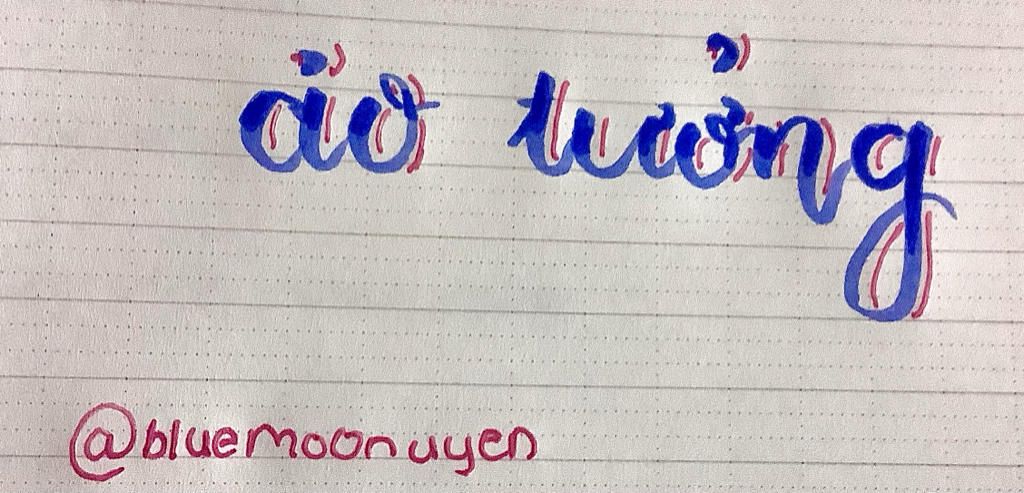 ảo tưởng
@bluemoonuyen